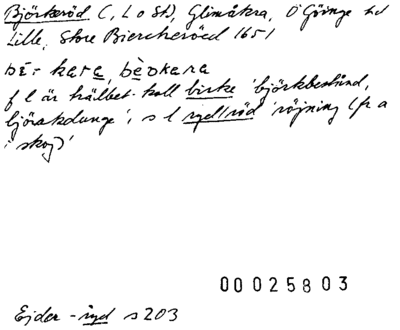 Björkeröd (, L o St), Glimåkra, Ö Göinge hd
Lille, Store Biercheröed 1651
bē- kara, bèokara
f l är kollbet. koll birke 'björkbestånd,
björkdunge', s l ryd/röd 'röjning (fr a
i skog)'
00025803
Ejder -ryd s 203